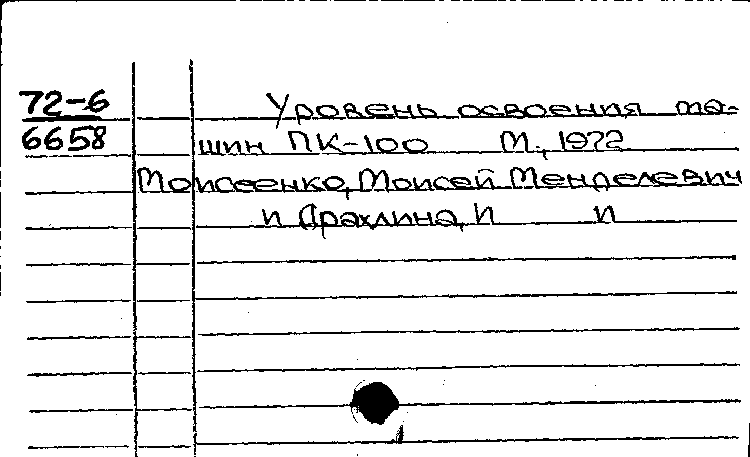 72-6 Уровень освоения ма-
6658 шин ПК-100 М., 1972
Моисеенко, Моисей Менделевич
и Драхлина, И И